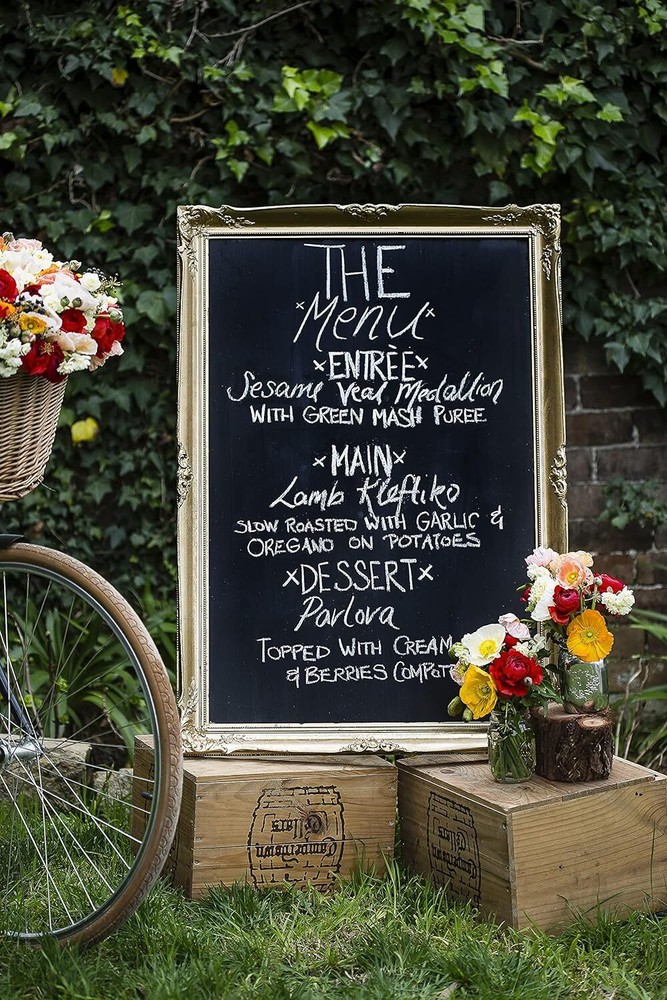 THE
×Menu×
×ENTRÈE×
Sesame Veal Medallion
WITH GREEN MASH PUREE
×MAIN×
Lamb Kleftiko
SLOW ROASTED WITH GARLIC &
OREGANO ON POTATOES
×DESSERT×
Pavlova
TOPPED WITH CREAM
& BERRIES COMPOT
Camperdown
Cellars
Camperdown
Cellars